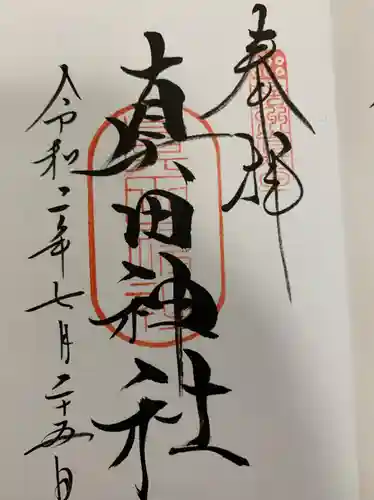 奉拝
真田神社
令和二年七月二十五日